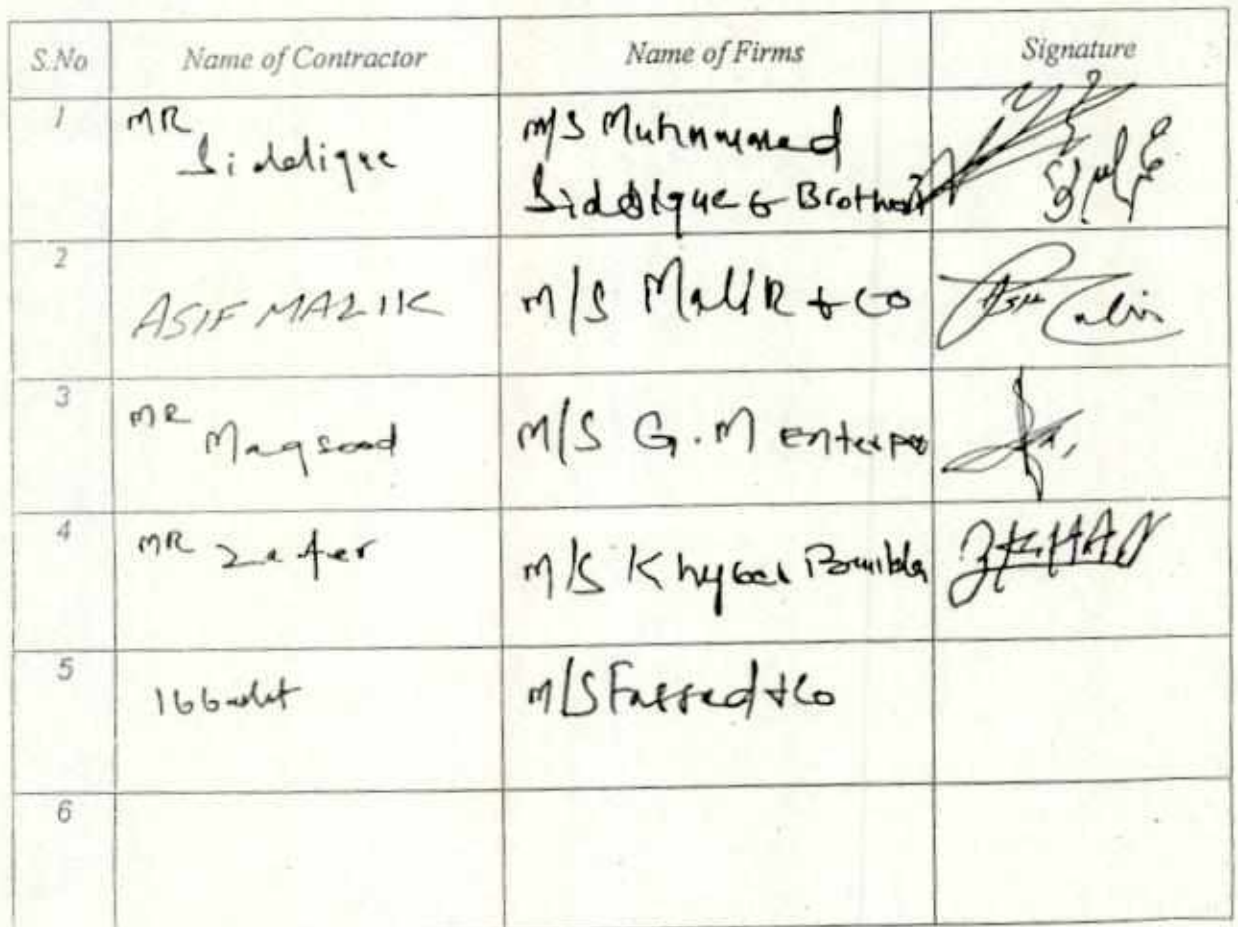 S.No Name of Contractor Name of Firms Signature
1 MR Siddique M/S Muhammad Siddique & Brother
2 ASIF MALIK M/S Malik & CO
3 MR Maqsood M/S G.M Enterpr
4 MR Zafer M/S Khyber
5 M/S &Co
6